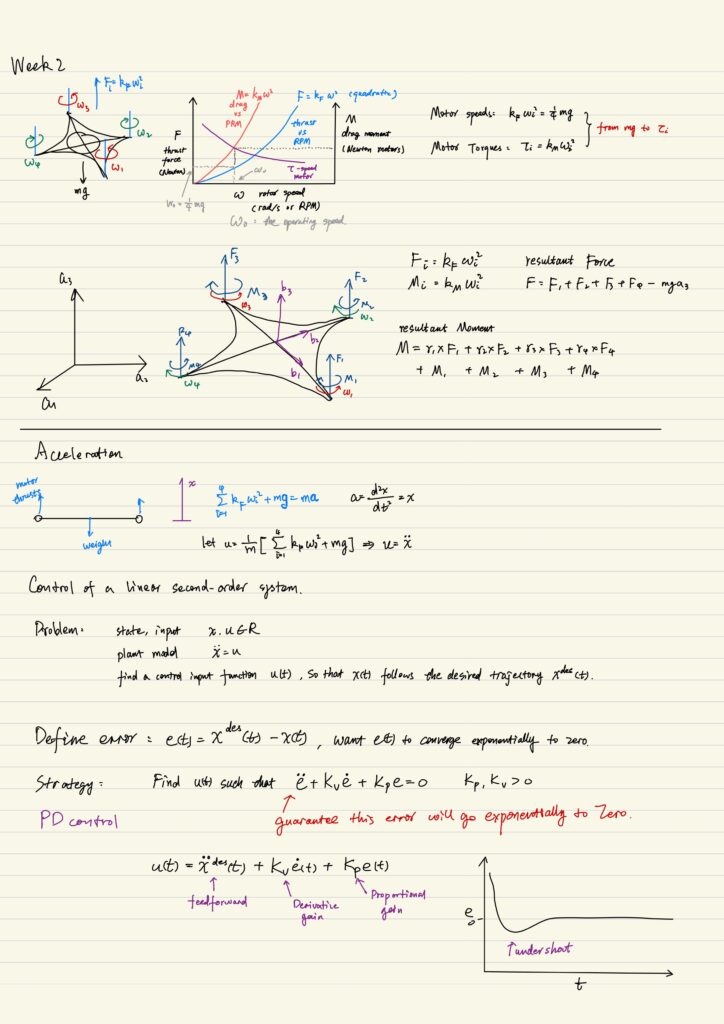 Week 2
F_i = k_F ω_i²
ω₃
ω₂
ω₄
ω₁
mg
M = k_M ω²
drag
vs
PRM
F = k_F ω² (quadratic)
thrust
vs
RPM
F
thrust
force
(Newton)
M
drag moment
(Newton meters)
τ-speed
motor
ω₀
W₀ = ¼ mg
ω rotor speed
(rad/s or RPM)
ω₀ = the operating speed
Motor speeds: k_F ω_i² = ¼ mg
Motor Torques: τ_i = k_M ω_i²
from mg to τ_i
a₃
a₂
a₁
F₃
M₃
ω₃
b₃
F₂
M₂
ω₂
b₂
F₄
M₄
ω₄
b₁
F₁
M₁
ω₁
F_i = k_F ω_i²
M_i = k_M ω_i²
resultant Force
F = F₁ + F₂ + F₃ + F₄ − mg a₃
resultant Moment
M = r₁ × F₁ + r₂ × F₂ + r₃ × F₃ + r₄ × F₄
+ M₁ + M₂ + M₃ + M₄
Acceleration
motor
thrusts
weight
x
∑_{i=1}^{4} k_F ω_i² + mg = ma
a = d²x/dt² = x
let u = 1/m [∑_{i=1}^{4} k_F ω_i² + mg] ⇒ u = ẍ
Control of a linear second-order system.
Problem: state, input x, u ∈ R
plant model ẍ = u
find a control input function u(t), so that x(t) follows the desired trajectory x^des(t).
Define error: e(t) = x^des(t) − x(t), want e(t) to converge exponentially to zero.
Strategy: Find u(t) such that ë + K_v ė + K_p e = 0 K_p, K_v > 0
PD control
guarantee this error will go exponentially to Zero.
u(t) = ẍ^des(t) + K_v ė(t) + K_p e(t)
feedforward
Derivative
gain
Proportional
gain
e
0
↑undershoot
t